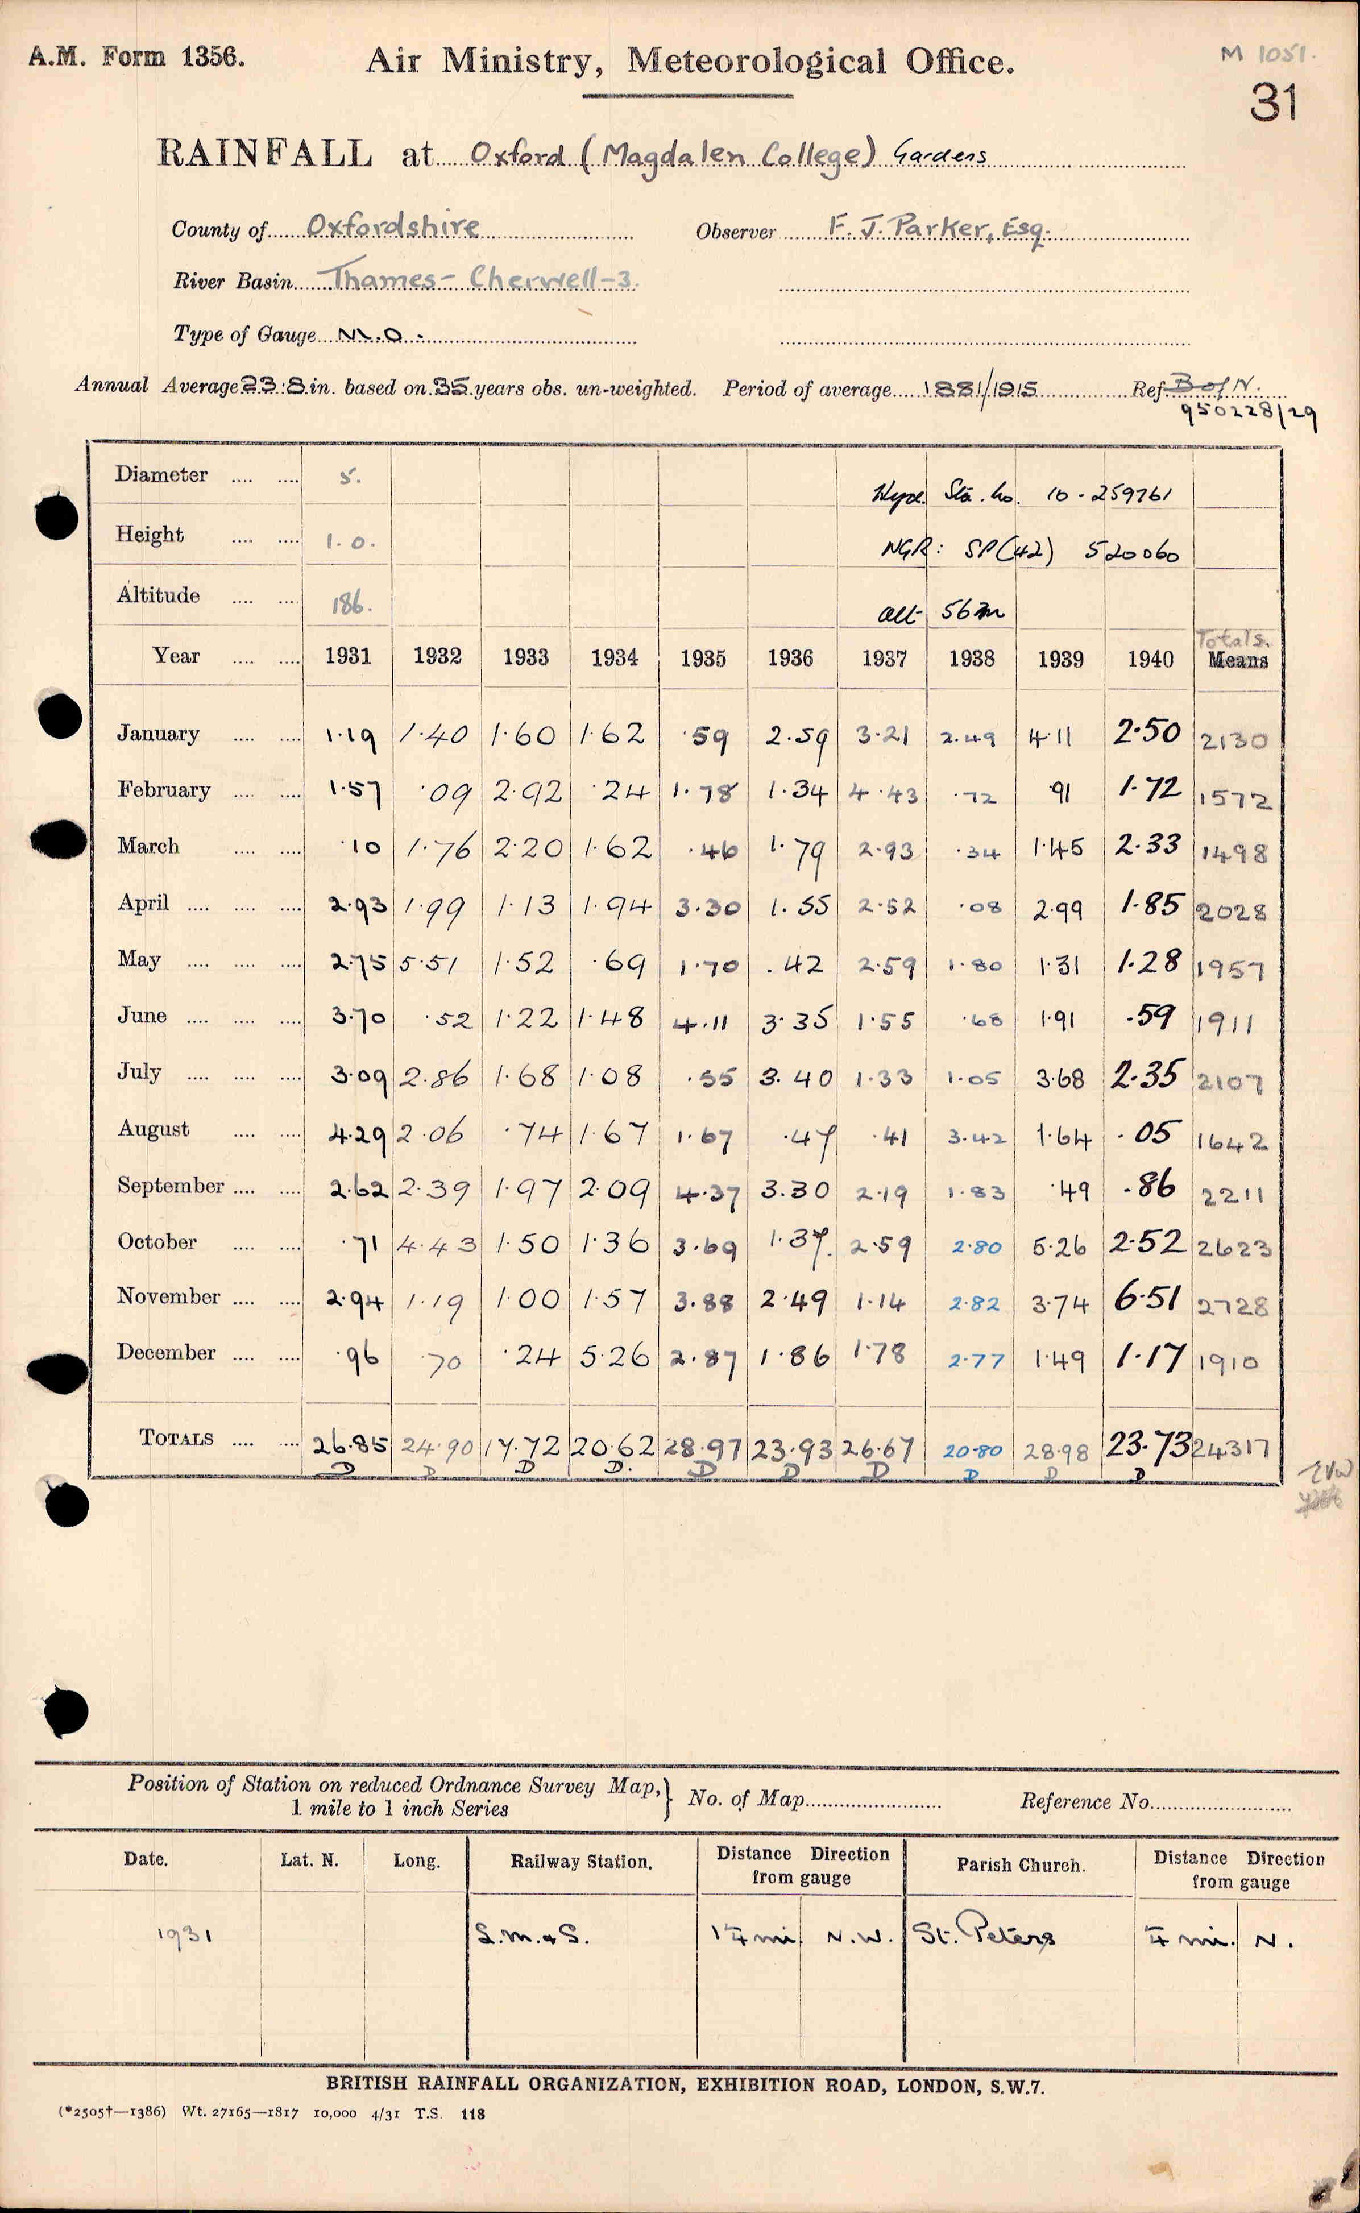 A.M. Form 1356. Air Ministry, Meteorological Office. M 1051.
31
RAINFALL at Oxford (Magdalen College) Gardens
County of Oxfordshire Observer F. J. Parker, Esq.
River Basin Thames - Cherwell - 3.
Type of Gauge M.O.
Annual Average 23.8 in. based on 35 years obs. un-weighted. Period of average 1881/1915 Ref. B of N.
950228/29
Diameter 5. Hyd. Sta. No. 10-259761
Height 1.0. NGR: SP(42) 520060
Altitude 186. alt 56m
Totals.
Year 1931 1932 1933 1934 1935 1936 1937 1938 1939 1940 Means
January 1.19 1.40 1.60 1.62 .59 2.59 3.21 2.49 4.11 2.50 2130
February 1.57 .09 2.92 .24 1.78 1.34 4.43 .72 .91 1.72 1572
March .10 1.76 2.20 1.62 .46 1.79 2.93 .34 1.45 2.33 1498
April 2.93 1.99 1.13 1.94 3.30 1.55 2.52 .08 2.99 1.85 2028
May 2.75 5.51 1.52 .69 1.70 .42 2.59 1.80 1.31 1.28 1957
June 3.70 .52 1.22 1.48 4.11 3.35 1.55 .68 1.91 .59 1911
July 3.09 2.86 1.68 1.08 .55 3.40 1.33 1.05 3.68 2.35 2107
August 4.29 2.06 .74 1.67 1.67 .47 .41 3.42 1.64 .05 1642
September 2.62 2.39 1.97 2.09 4.37 3.30 2.19 1.83 .49 .86 2211
October .71 4.43 1.50 1.36 3.69 1.37 2.59 2.80 5.26 2.52 2623
November 2.94 1.19 1.00 1.57 3.88 2.49 1.14 2.82 3.74 6.51 2728
December .96 .70 .24 5.26 2.87 1.86 1.78 2.77 1.49 1.17 1910
TOTALS 26.85 24.90 17.72 20.62 28.97 23.93 26.67 20.80 28.98 23.73 24317
D D D D. D D D D D D
Position of Station on reduced Ordnance Survey Map, 1 mile to 1 inch Series } No. of Map Reference No.
Date. Lat. N. Long. Railway Station. Distance Direction from gauge Parish Church. Distance Direction from gauge
1931 L.M.&S. 1¼ mi N.W. St. Peters ¼ mi. N.
BRITISH RAINFALL ORGANIZATION, EXHIBITION ROAD, LONDON, S.W.7.
(*2505†—1386) Wt. 27165—1817 10,000 4/31 T.S. 118